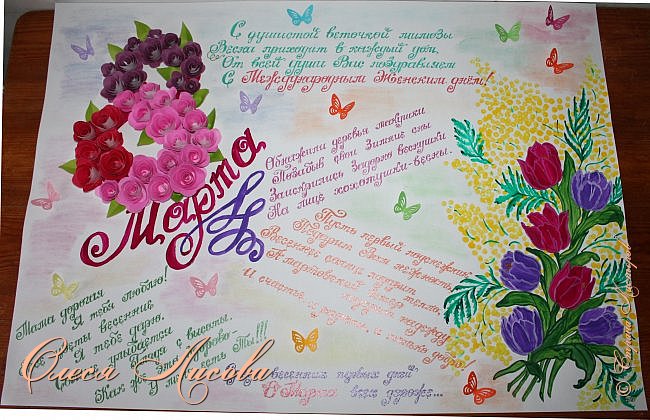 С душистой веточкой мимозы
Весна приходит в каждый дом,
От всей души Вас поздравляем
С Международным Женским днём!
Марта
Обнажили деревья макушки
Позабыв свои Зимние сны
Заискрились Задорно веснушки
На лице хохотушки-весны.
Пусть первый подснежник
Подарит Вам нежность
Весеннее солнце подарит тепло
А мартовский ветер подарит надежду
И счастье, и радость, и только добро!
Мама дорогая
Я тебя люблю!
цветы весенние
Я тебе дарю.
Солнце улыбается
с высоты.
Как же это здорово-
У меня есть Ты!!!
весенних первых дней
С 8 Марта всех дороже...
Олеся Лисова